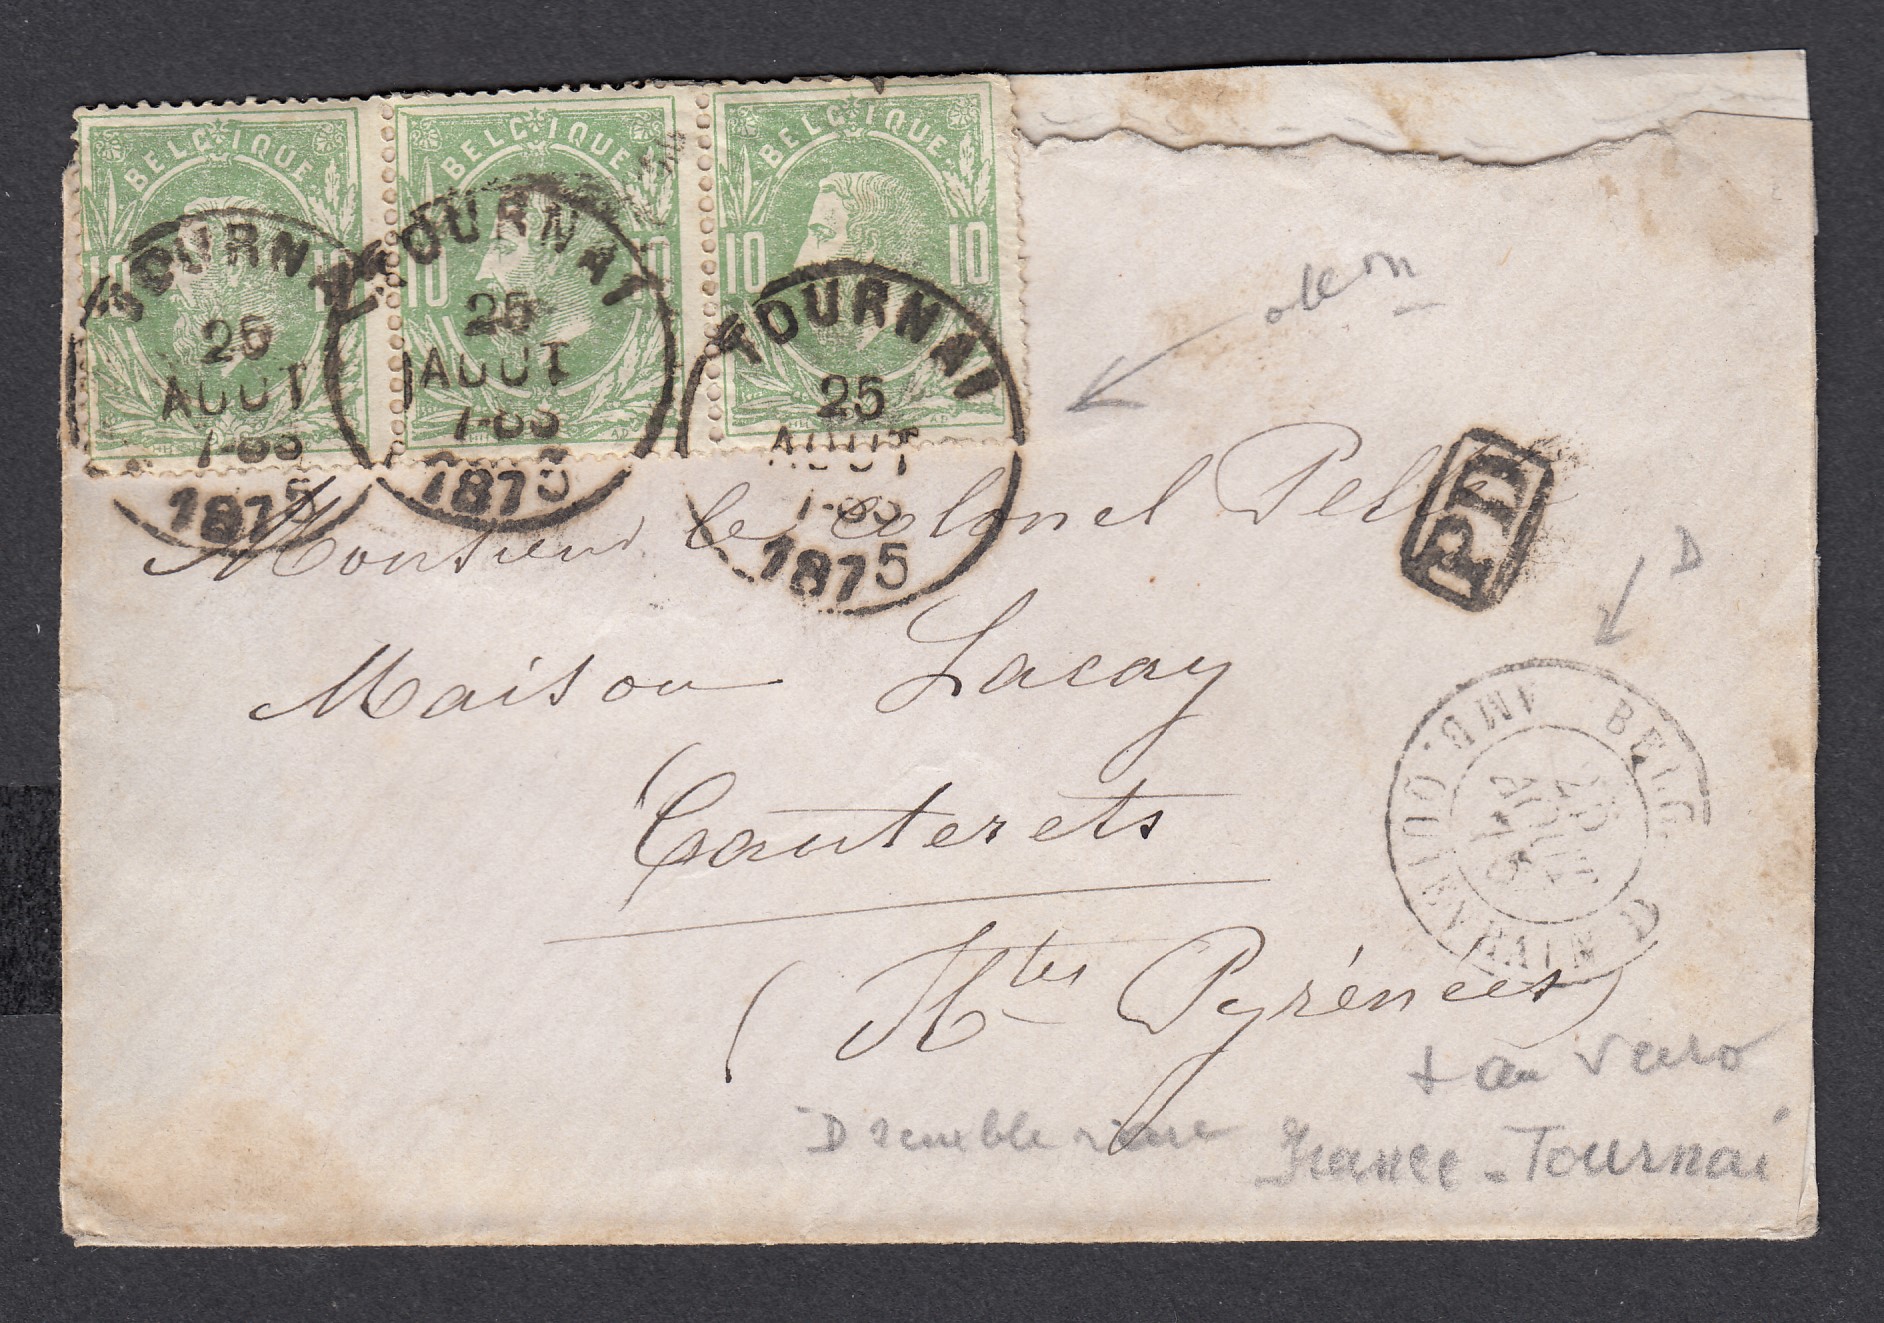 BELGIQUE BELGIQUE BELGIQUE
10 10 10 10 10 10
TOURNAI
25
AOUT
7-S3
1875
TOURNAI
25
AOUT
7-S3
1875
TOURNAI
25
AOUT
7-S3
1875
PD
D
Monsieur le colonel
Maison Lacay
Cauterets
(Htes Pyrénées)
BELG. AMB. QUIEVRAIN D
25
AOUT
75
+ au verso
D semble
France - Tournai